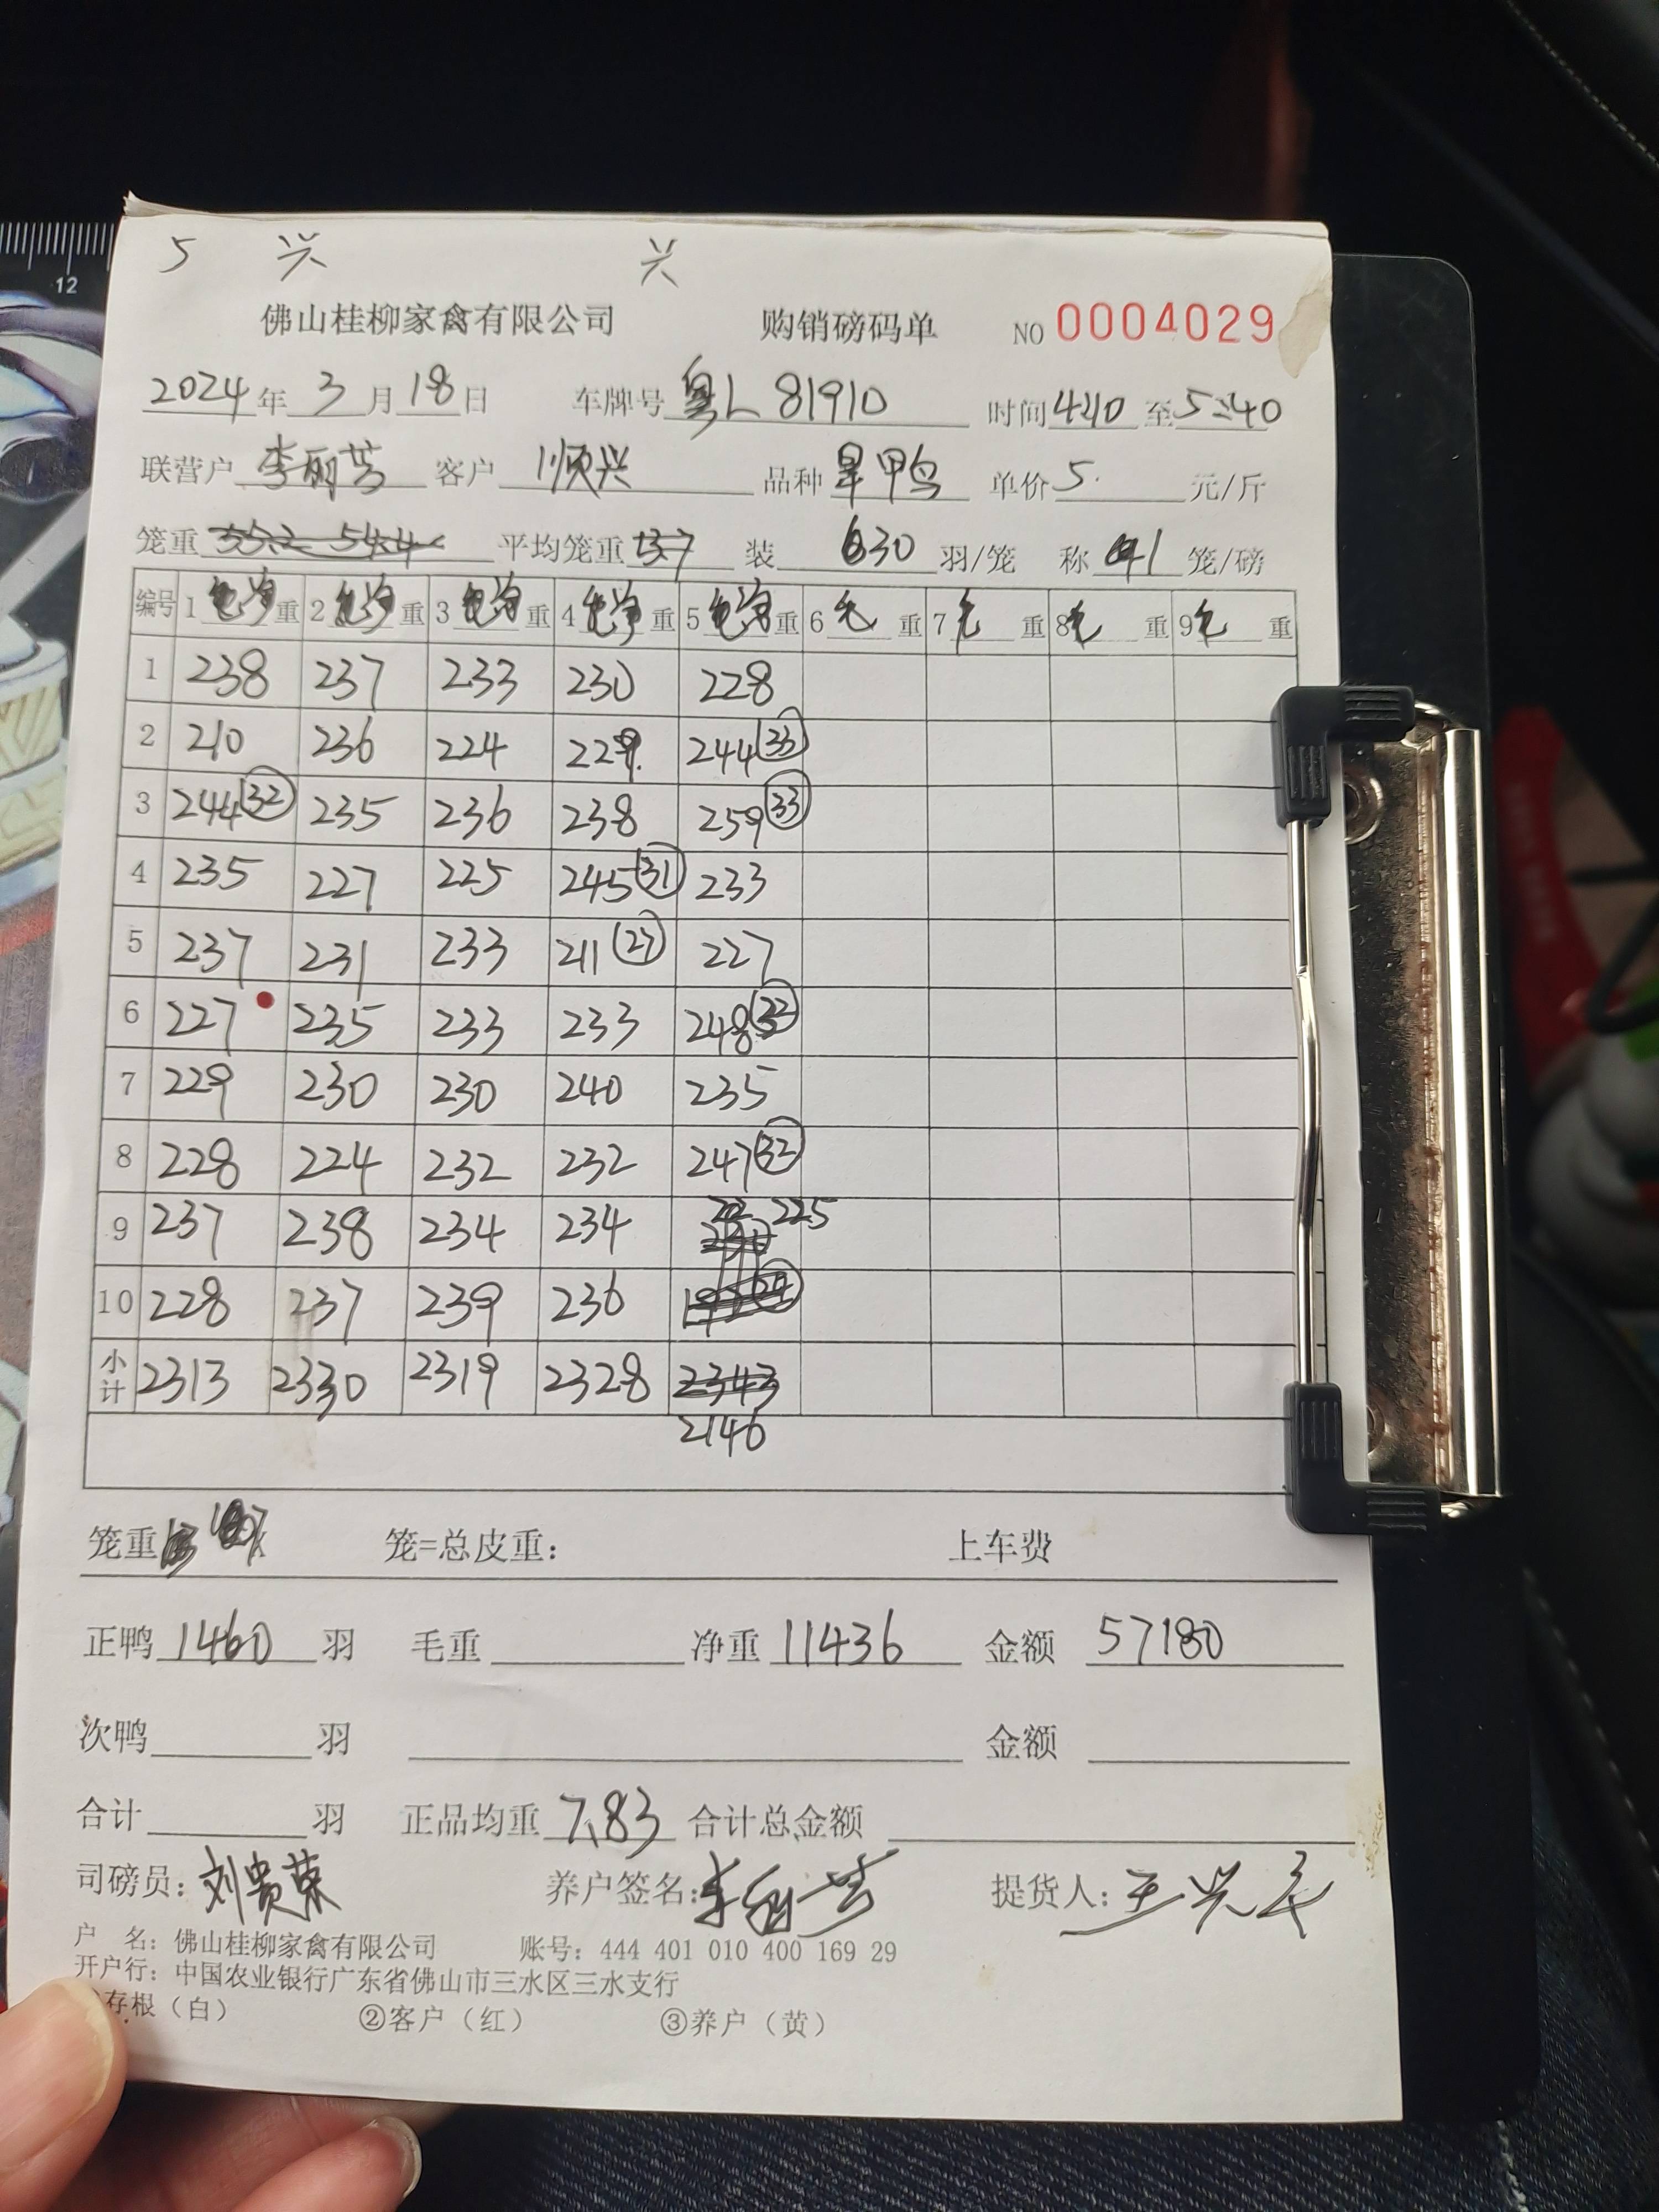 5 兴 兴
佛山桂柳家禽有限公司 购销磅码单 NO 0004029
2024年 3 月 18 日 车牌号 粤L 81910 时间 4:40 至 5:40
联营户 李丽芳 客户 顺兴 品种 旱鸭 单价 5. 元/斤
笼重 55.2 54.4 平均笼重 装 30 羽/笼 称 1 笼/磅
编号 1 净重 2 净重 3 净重 4 净重 5 净重 6 毛 重 7 毛 重 8 毛 重 9 毛 重
1 238 237 233 230 228
2 210 236 224 229 244 (33)
3 244 (32) 235 236 238 259 (33)
4 235 227 225 245 (31) 233
5 237 231 233 211 (27) 227
6 227 235 233 233 248 (32)
7 229 230 230 240 235
8 228 224 232 232 247 (32)
9 237 238 234 234 225
10 228 237 239 236
小计 2313 2330 2319 2328 2343
2146
笼重 笼=总皮重： 上车费
正鸭 1460 羽 毛重 净重 11436 金额 57180
次鸭 羽 金额
合计 羽 正品均重 7.83 合计总金额
司磅员：刘贵荣 养户签名：李丽芳 提货人：王兴
户 名：佛山桂柳家禽有限公司 账号：444 401 010 400 169 29
开户行：中国农业银行广东省佛山市三水区三水支行
存根（白） ②客户（红） ③养户（黄）